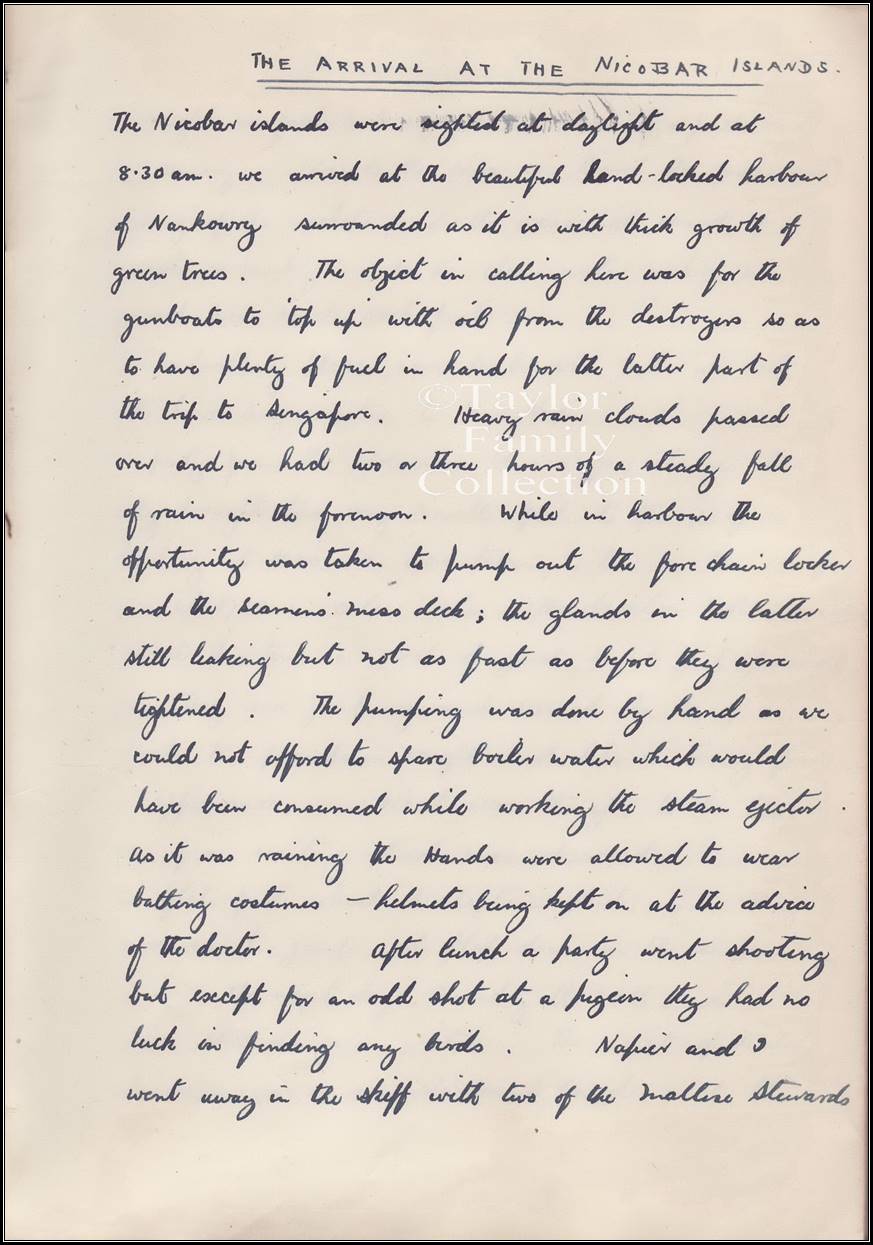 THE ARRIVAL AT THE NICOBAR ISLANDS.
The Nicobar islands were sighted at daylight and at
8.30 am. we arrived at the beautiful land-locked harbour
of Nankowry surrounded as it is with thick growth of
green trees. The object in calling here was for the
gunboats to 'top up' with oil from the destroyers so as
to have plenty of fuel in hand for the latter part of
the trip to Singapore. Heavy rain clouds passed
over and we had two or three hours of a steady fall
of rain in the forenoon. While in harbour the
opportunity was taken to pump out the fore chain locker
and the seamen's mess deck; the glands in the latter
still leaking but not as fast as before they were
tightened. The pumping was done by hand as we
could not afford to spare boiler water which would
have been consumed while working the steam ejector.
As it was raining the Hands were allowed to wear
bathing costumes - helmets being kept on at the advice
of the doctor. After lunch a party went shooting
but except for an odd shot at a pigeon they had no
luck in finding any birds. Napier and I
went away in the skiff with two of the Maltese Stewards
©Taylor
Family
Collection